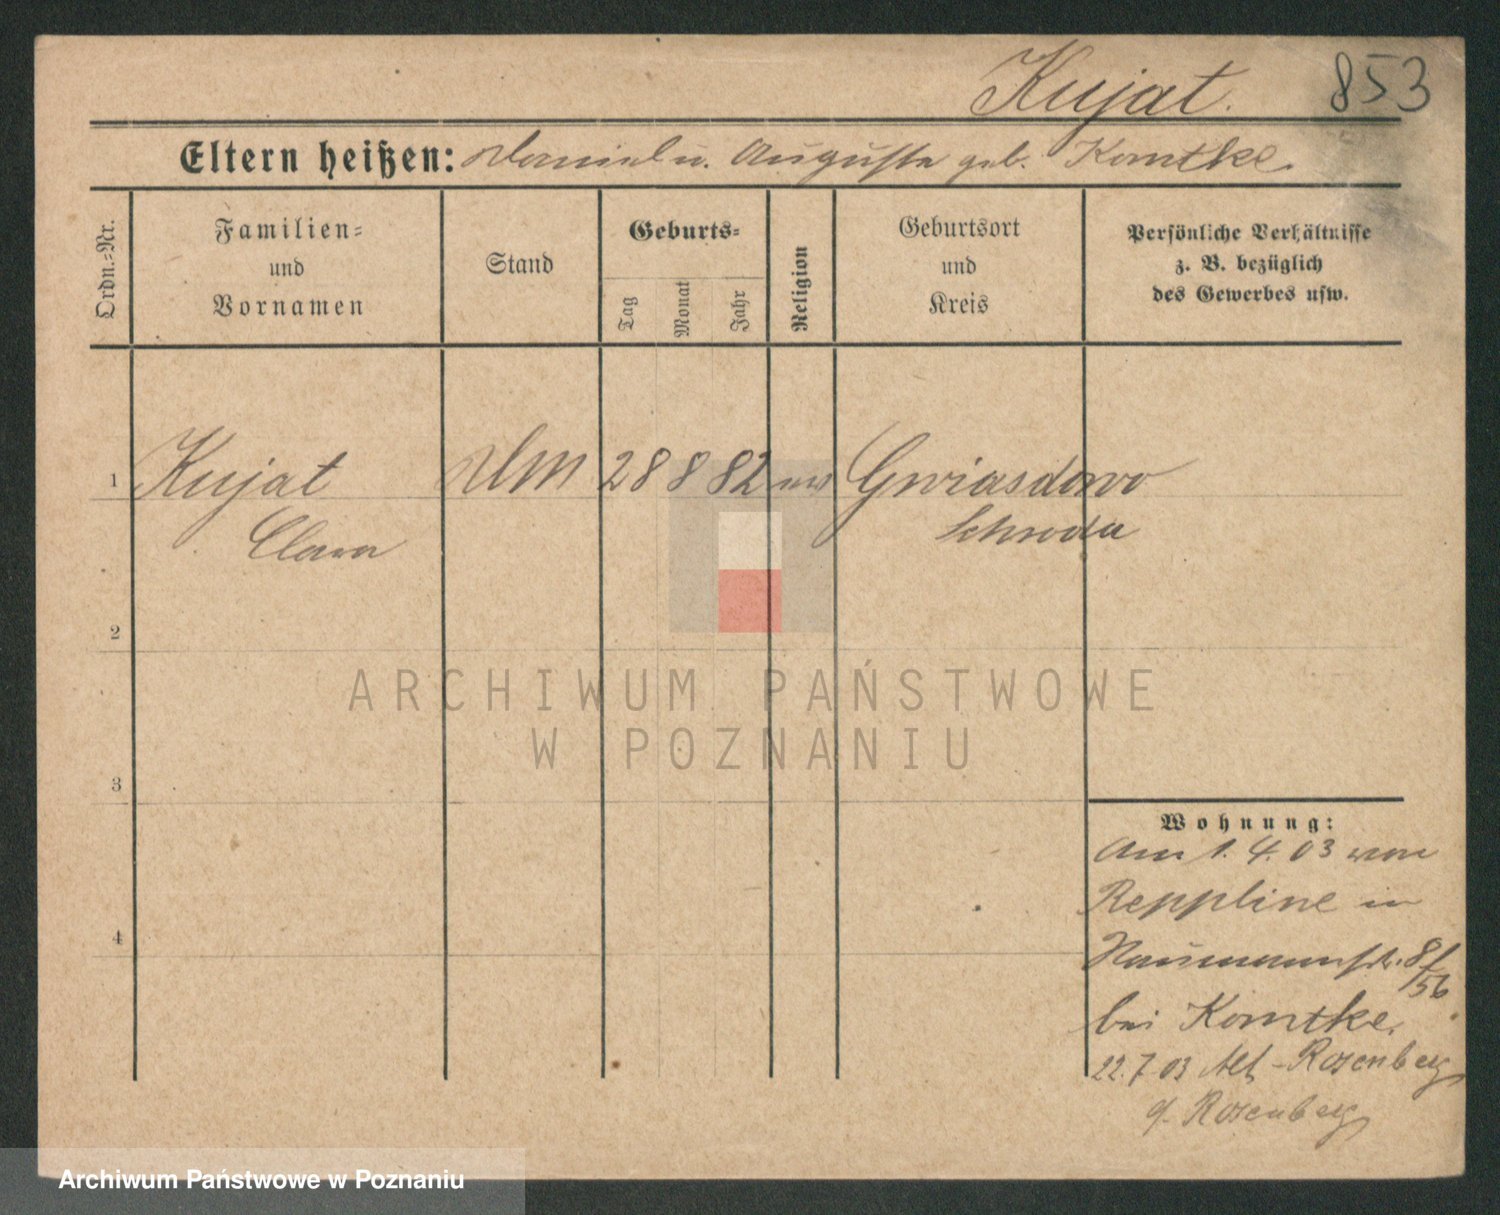 Kujat. 853
Eltern heißen: Daniel u. Auguste geb. Komtke.
Ordn.-Nr.
Familien-
und
Vornamen
Stand
Geburts-
Tag
Monat
Jahr
Religion
Geburtsort
und
Kreis
Persönliche Verhältnisse
z. B. bezüglich
des Gewerbes usw.
1 Kujat 28 8 82 ev Gwiasdowo
Clara Schroda
2
3
4
ARCHIWUM PAŃSTWOWE
W POZNANIU
Wohnung:
Am 1. 4. 03 von
Reppline in
Naumannstr. 8/
56
bei Komtke.
22.7.03 Alt-Rosenberg
Rosenberg
Archiwum Państwowe w Poznaniu